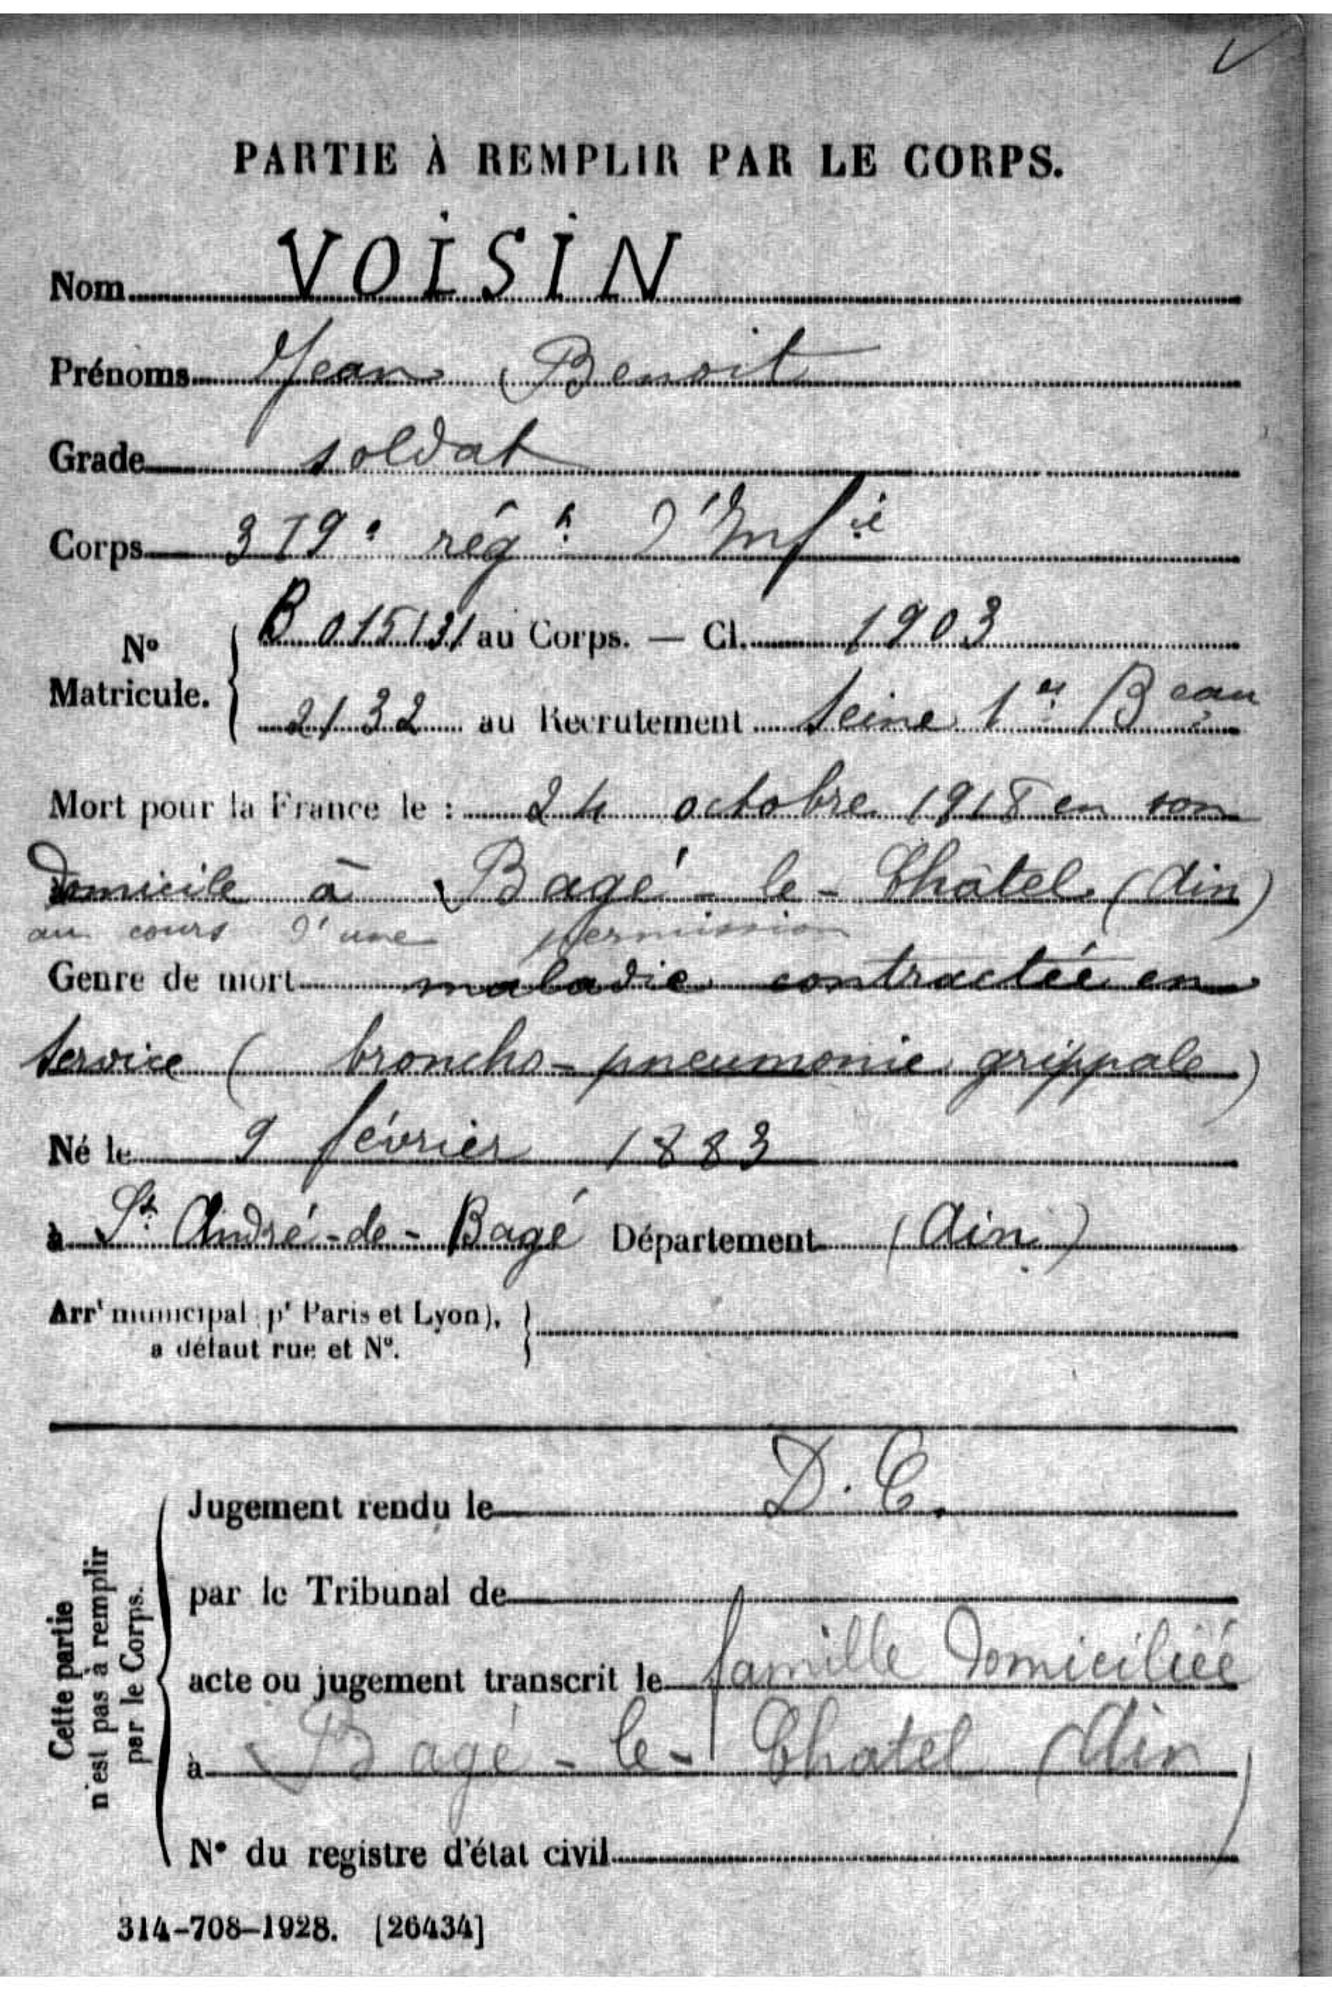 PARTIE À REMPLIR PAR LE CORPS.
Nom VOISIN
Prénoms Jean Benoit
Grade soldat
Corps 319e rég t d'Inf ie
No Matricule. { B 015131 au Corps. — Cl. 1903
2132 au Recrutement Seine 1er Beau
Mort pour la France le : 24 octobre 1918 en son
domicile à Bagé-le-Châtel (Ain)
au cours d'une permission
Genre de mort maladie contractée en
service (broncho-pneumonie grippale)
Né le 9 février 1883
à St. André-de-Bagé Département (Ain)
Arrt municipal (pr Paris et Lyon),
à défaut rue et No.
D. C.
Jugement rendu le
par le Tribunal de
acte ou jugement transcrit le famille domiciliée
à Bagé-le-Chatel (Ain)
No du registre d'état civil
Cette partie
n'est pas à remplir
par le Corps.
314-708-1928. [26434]